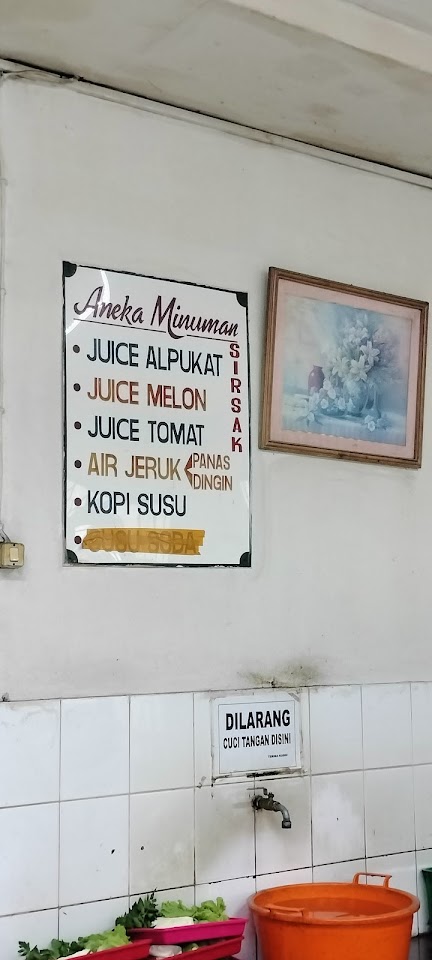 Aneka Minuman
• JUICE ALPUKAT
• JUICE MELON
• JUICE TOMAT
• AIR JERUK PANAS
DINGIN
• KOPI SUSU
• SUSU SODA
SIRSAK
DILARANG
CUCI TANGAN DISINI